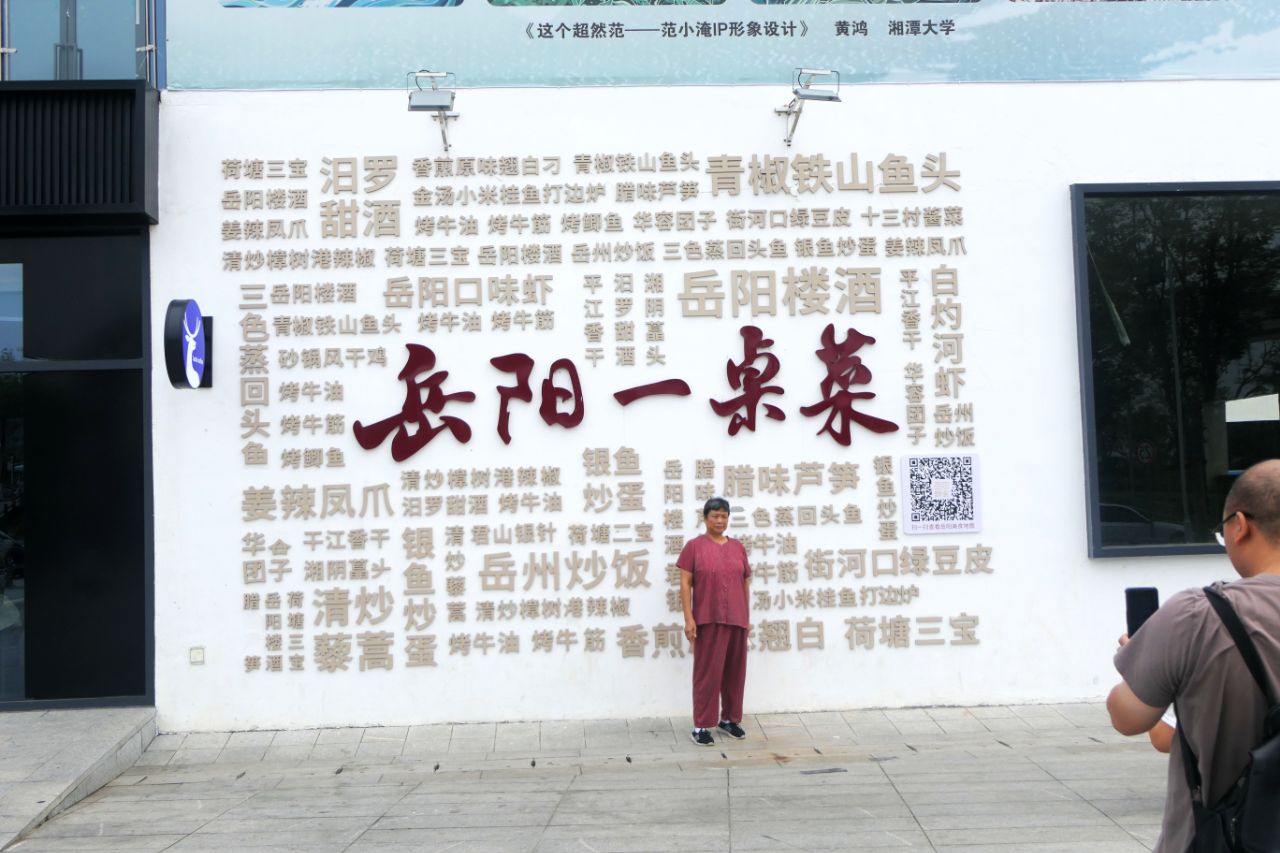 《这个超然范——范小淹IP形象设计》 黄鸿 湘潭大学
荷塘三宝
岳阳楼酒
姜辣凤爪
汨罗
甜酒
香煎原味翘白刁 青椒铁山鱼头
金汤小米桂鱼打边炉 腊味芦笋
青椒铁山鱼头
烤牛油 烤牛筋 烤鲫鱼 华容团子 街河口绿豆皮 十三村酱菜
清炒樟树港辣椒 荷塘三宝 岳阳楼酒 岳州炒饭 三色蒸回头鱼 银鱼炒蛋 姜辣凤爪
三色蒸回头鱼
岳阳楼酒
岳阳口味虾
青椒铁山鱼头 烤牛油 烤牛筋
砂锅风干鸡
烤牛油
烤牛筋
烤鲫鱼
平江香干
汨罗甜酒
湘阴藠头
岳阳楼酒
平江香干
白灼河虾
华容团子
岳州
炒饭
岳阳一桌菜
姜辣凤爪
清炒樟树港辣椒
汨罗甜酒 烤牛油
银鱼
炒蛋
岳阳楼酒
腊味
腊味芦笋
银鱼炒蛋
扫一扫查看岳阳美食地图
华合
团子
干江香干
湘阴藠头
银鱼炒蛋
清炒藜蒿
君山银针 荷塘二宝
三色蒸回头鱼
岳州炒饭
烤牛油
牛筋
街河口绿豆皮
腊
笋
岳阳楼酒
荷塘三宝
清炒
藜蒿
清炒樟树港辣椒
汤小米桂鱼打边炉
烤牛油 烤牛筋
香煎
翘白
荷塘三宝